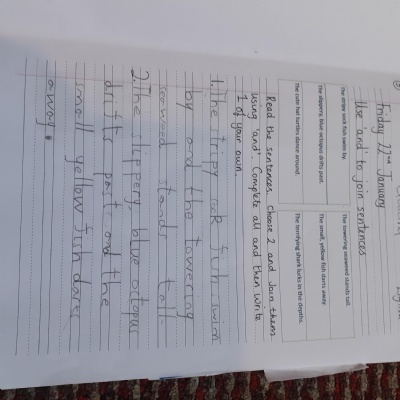 Friday 22nd January
Use 'and' to join sentences
The stripy sock fish swim by. The towering seaweed stands tall.
The slippery, blue octopus drifts past. The small, yellow fish darts away.
The cute hat turtles dance around. The terrifying shark lurks in the depths.
Read the sentences. Choose 2 and join them
using 'and'. Complete all and then write
1 of your own.
1. The stripy sock fish swim
by and the towering
stands tall.
2. The slippery blue octopus
drifts past and the
small yellow fish darts
away.